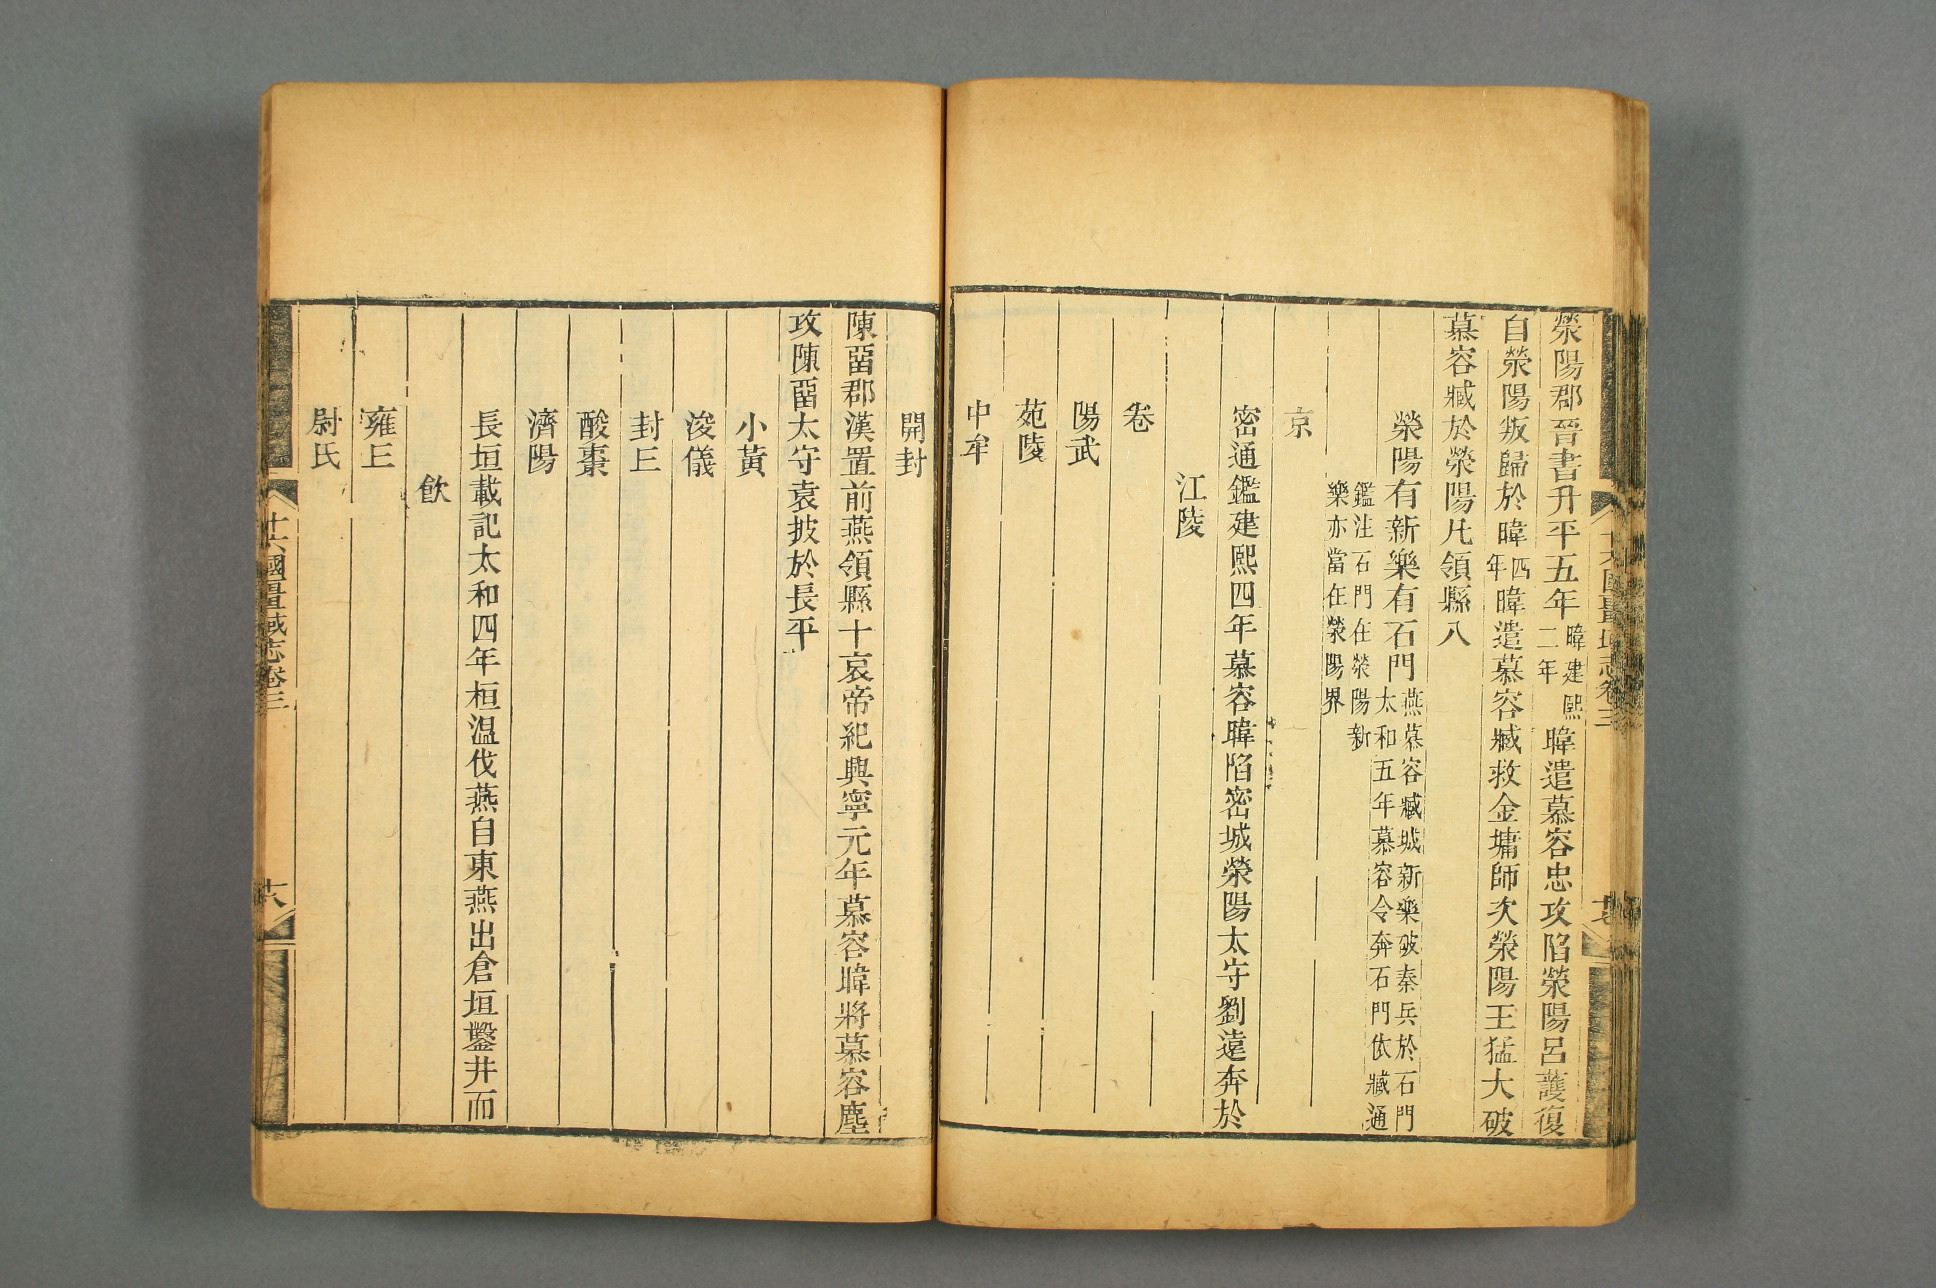 滎陽郡晉書升平五年暐建熙二年暐遣慕容忠攻陷滎陽呂護復
自滎陽叛歸於暐四年暐遣慕容臧救金墉師次滎陽王猛大破
慕容臧於滎陽凡領縣八
滎陽有新樂有石門燕慕容臧城新樂破秦兵於石門
太和五年慕容令奔石門依臧通
鑑注石門在滎陽新
樂亦當在滎陽界
京
密通鑑建熙四年慕容暐陷密城滎陽太守劉遠奔於
江陵
卷
陽武
苑陵
中牟
開封
陳畱郡漢置前燕領縣十哀帝紀興寧元年慕容暐將慕容塵
攻陳畱太守袁披於長平
小黃
浚儀
封𠀉
酸棗
濟陽
長垣載記太和四年桓温伐燕自東燕出倉垣鑿井而
飲
雍𠀉
尉氏
十六國疆域志卷三
十六國疆域志卷三